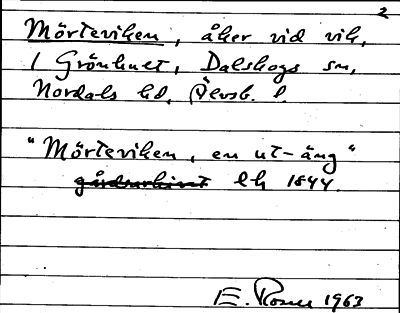 2
Mörteviken, åker vid vik,
i Grönhult, Dalskogs sn,
Nordals hd, Älvsb. l.
"Mörteviken, en ut-äng"
gårdsarkivet lh 1844.
E. Rosell 1963